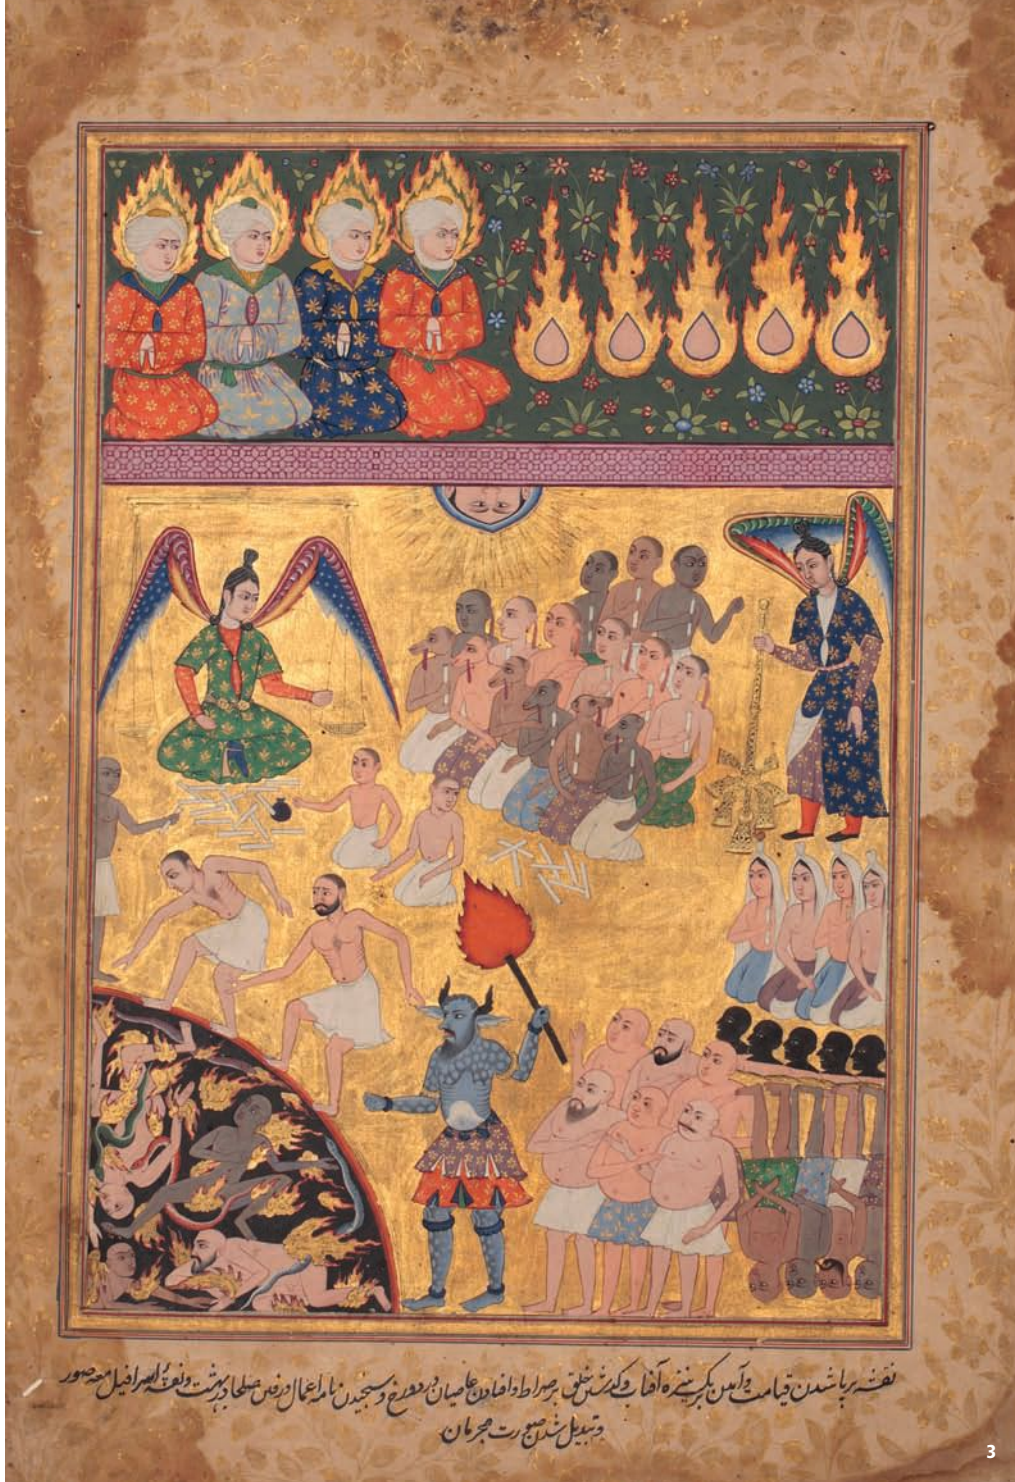 نقشهٔ برپا شدن قیامت و آمدن بر یک نیزه آفتاب و گذشتن خلق بر صراط و افتادن عاصیان در دوزخ و سنجیدن نامه اعمال و رفتن صلحا در بهشت و نفخهٔ اسرافیل معه صور
و تبدیل شدن صورت مجرمان
3